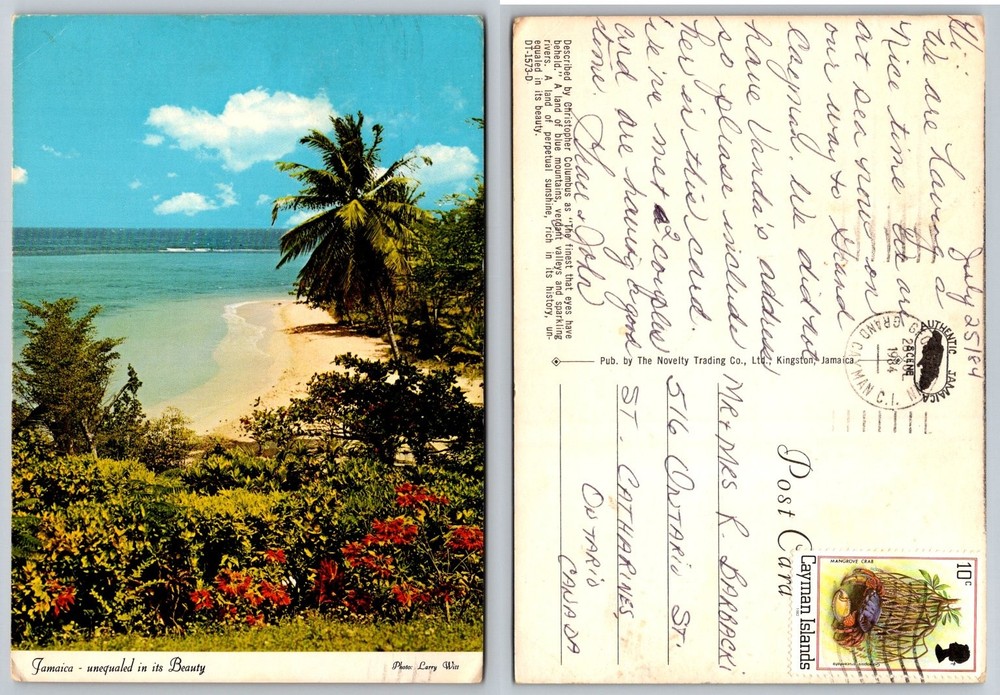 Jamaica - unequaled in its Beauty
Photo: Larry Witt
July 25/84
Hi
We are having
Nice time, are
at sea now on
our way to Grand
Cayman. We did not
have Vanda's address
so please include
her in this card.
We've met 2 couples
and are having a good
time.
& John
Described by Christopher Columbus as "The finest that eyes have
beheld." A land of blue mountains, verdant valleys and sparkling
rivers. A land of perpetual sunshine, rich in its history, un-
equaled in its beauty.
DT-1573-D
Pub. by The Novelty Trading Co., Ltd., Kingston, Jamaica.
AUTHENTIC JAMAICA SCENE
GRAND CAYMAN C.I.
1984
Post Card
10c
MANGROVE CRAB
Cayman Islands
MR & MRS R. BARBACKI
516 ONTARIO ST.
ST. CATHARINES,
ONTARIO
CANADA